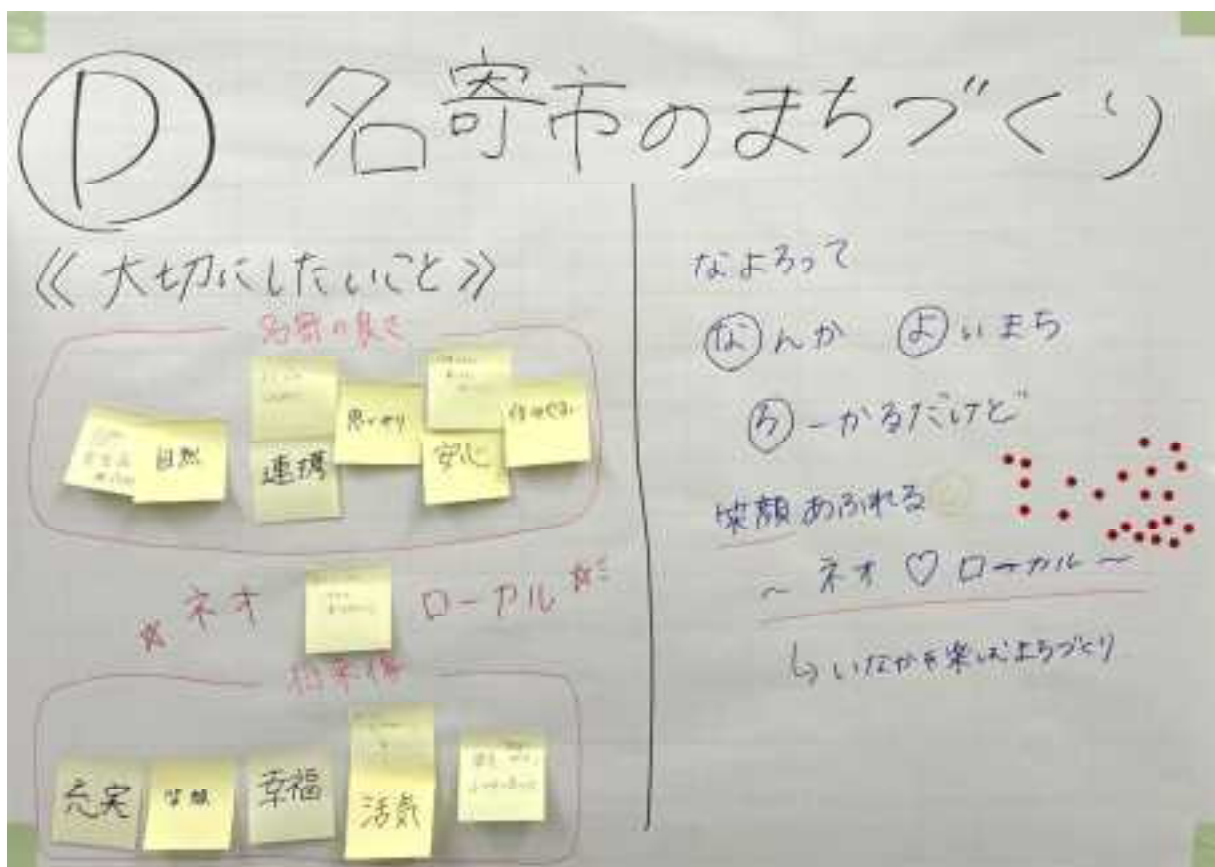 D 名寄市のまちづくり
≪大切にしたいこと≫
名寄の良さ
自然
連携
思いやり
安心
ネオ ローカル
将来像
充実
笑顔
幸福
活気
なよろって
なんか よいまち
ろーかるだけど
笑顔あふれる
～ネオ♡ローカル～
↳いなかを楽しむまちづくり